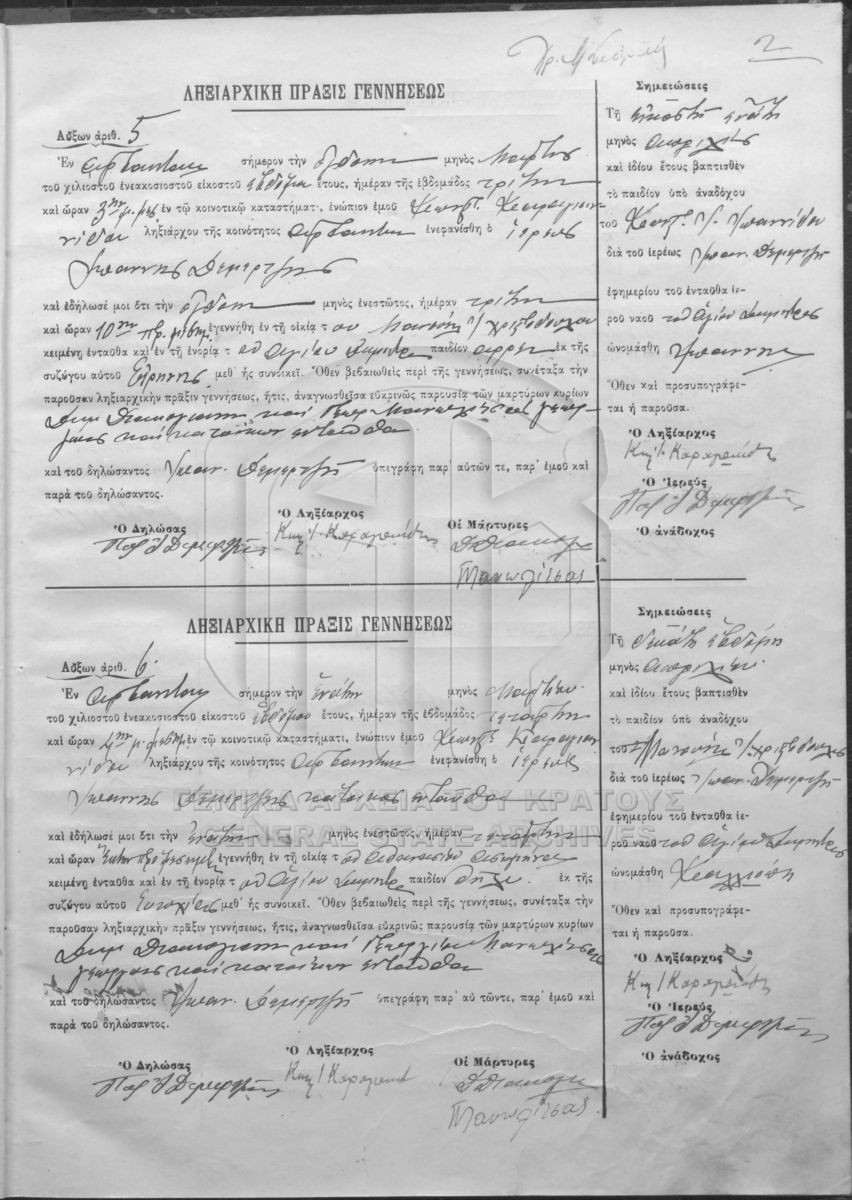 2
ΛΗΞΙΑΡΧΙΚΗ ΠΡΑΞΙΣ ΓΕΝΝΗΣΕΩΣ
Αὔξων ἀριθ. 5
Ἐν σήμερον τὴν ὀγδόην μηνὸς Μαρτίου
τοῦ χιλιοστοῦ ἐνεακοσιοστοῦ εἰκοστοῦ ἑβδόμου ἔτους, ἡμέραν τῆς ἑβδομάδος τρίτην
καὶ ὥραν 3ην μ.μ. ἐν τῷ κοινοτικῷ καταστήματι, ἐνώπιον ἐμοῦ Κωνστ. Καραγιαν
νίδου ληξιάρχου τῆς κοινότητος ἐνεφανίσθη ὁ ἱερεὺς
Ἰωάννης Δεμερτζῆς
καὶ ἐδήλωσέ μοι ὅτι τὴν ὀγδόην μηνὸς ἐνεστῶτος, ἡμέραν τρίτην
καὶ ὥραν 10ην πρ. μεσημ. ἐγεννήθη ἐν τῇ οἰκίᾳ τοῦ Μανώλη Χριστοδούλου
κειμένῃ ἐνταῦθα καὶ ἐν τῇ ἐνορίᾳ τοῦ Ἁγίου Δημητρ. παιδίον ἄρρεν ἐκ τῆς
συζύγου αὐτοῦ Εἰρήνης μεθ' ἧς συνοικεῖ. Ὅθεν βεβαιωθεὶς περὶ τῆς γεννήσεως, συνέταξα τὴν
παροῦσαν ληξιαρχικὴν πρᾶξιν γεννήσεως, ἥτις, ἀναγνωσθεῖσα εὐκρινῶς παρουσίᾳ τῶν μαρτύρων κυρίων
Δημ. καὶ Γεωργ. Μανωλίτσας γεωρ
γοὺς καὶ κατοίκων ἐνταῦθα
καὶ τοῦ δηλώσαντος Ἰωάν. Δεμερτζῆ ὑπεγράφη παρ' αὐτῶν τε, παρ' ἐμοῦ καὶ
παρὰ τοῦ δηλώσαντος.
Ὁ Δηλώσας
Ὁ Ληξίαρχος
Οἱ Μάρτυρες
Μανωλίτσας
Σημειώσεις
Τῇ εἰκοστῇ ἐνάτῃ
μηνὸς Ἀπριλίου
καὶ ἰδίου ἔτους βαπτισθὲν
τὸ παιδίον ὑπὸ ἀναδόχου
τοῦ Κωνστ. Ἰωαννίδου
διὰ τοῦ ἱερέως Ἰωάν. Δεμερτζῆ
ἐφημερίου τοῦ ἐνταῦθα ἱε-
ροῦ ναοῦ τοῦ Ἁγίου Δημητρίου
ὠνομάσθη Ἰωάννης
Ὅθεν καὶ προσυπογράφε-
ται ἡ παροῦσα.
Ὁ Ληξίαρχος
Ὁ Ἱερεὺς
Ὁ ἀνάδοχος
ΛΗΞΙΑΡΧΙΚΗ ΠΡΑΞΙΣ ΓΕΝΝΗΣΕΩΣ
Αὔξων ἀριθ. 6
Ἐν σήμερον τὴν ἐνάτην μηνὸς Μαρτίου
τοῦ χιλιοστοῦ ἐνεακοσιοστοῦ εἰκοστοῦ ἑβδόμου ἔτους, ἡμέραν τῆς ἑβδομάδος τετάρτην
καὶ ὥραν 4ην μ. μεσημ. ἐν τῷ κοινοτικῷ καταστήματι, ἐνώπιον ἐμοῦ Κωνστ. Καραγιαν
νίδου ληξιάρχου τῆς κοινότητος ἐνεφανίσθη ὁ ἱερεὺς
Ἰωάννης Δεμερτζῆς κάτοικος ἐνταῦθα
ΓΕΝΙΚΑ ΑΡΧΕΙΑ ΤΟΥ ΚΡΑΤΟΥΣ
GENERAL STATE ARCHIVES
καὶ ἐδήλωσέ μοι ὅτι τὴν ἐνάτην μηνὸς ἐνεστῶτος, ἡμέραν τετάρτην
καὶ ὥραν ἕκτην ἐγεννήθη ἐν τῇ οἰκίᾳ τοῦ Ἀθανασίου
κειμένῃ ἐνταῦθα καὶ ἐν τῇ ἐνορίᾳ τοῦ Ἁγίου Δημητρ. παιδίον θῆλυ ἐκ τῆς
συζύγου αὐτοῦ μεθ' ἧς συνοικεῖ. Ὅθεν βεβαιωθεὶς περὶ τῆς γεννήσεως, συνέταξα τὴν
παροῦσαν ληξιαρχικὴν πρᾶξιν γεννήσεως, ἥτις, ἀναγνωσθεῖσα εὐκρινῶς παρουσίᾳ τῶν μαρτύρων κυρίων
Δημ. καὶ Γεωργίου Μανωλίτσας
γεωργοὺς καὶ κατοίκων ἐνταῦθα
καὶ τοῦ δηλώσαντος Ἰωάν. Δεμερτζῆ ὑπεγράφη παρ' αὐτῶντε, παρ' ἐμοῦ καὶ
παρὰ τοῦ δηλώσαντος.
Ὁ Δηλώσας
Ὁ Ληξίαρχος
Οἱ Μάρτυρες
Μανωλίτσας
Σημειώσεις
Τῇ δεκάτῃ ἑβδόμῃ
μηνὸς Ἀπριλίου
καὶ ἰδίου ἔτους βαπτισθὲν
τὸ παιδίον ὑπὸ ἀναδόχου
τοῦ Μανώλη Χριστοδούλου
διὰ τοῦ ἱερέως Ἰωάν. Δεμερτζῆ
ἐφημερίου τοῦ ἐνταῦθα ἱε-
ροῦ ναοῦ τοῦ Ἁγίου Δημητρίου
ὠνομάσθη Καλλιόπη
Ὅθεν καὶ προσυπογράφε-
ται ἡ παροῦσα.
Ὁ Ληξίαρχος
Ὁ Ἱερεὺς
Ὁ ἀνάδοχος